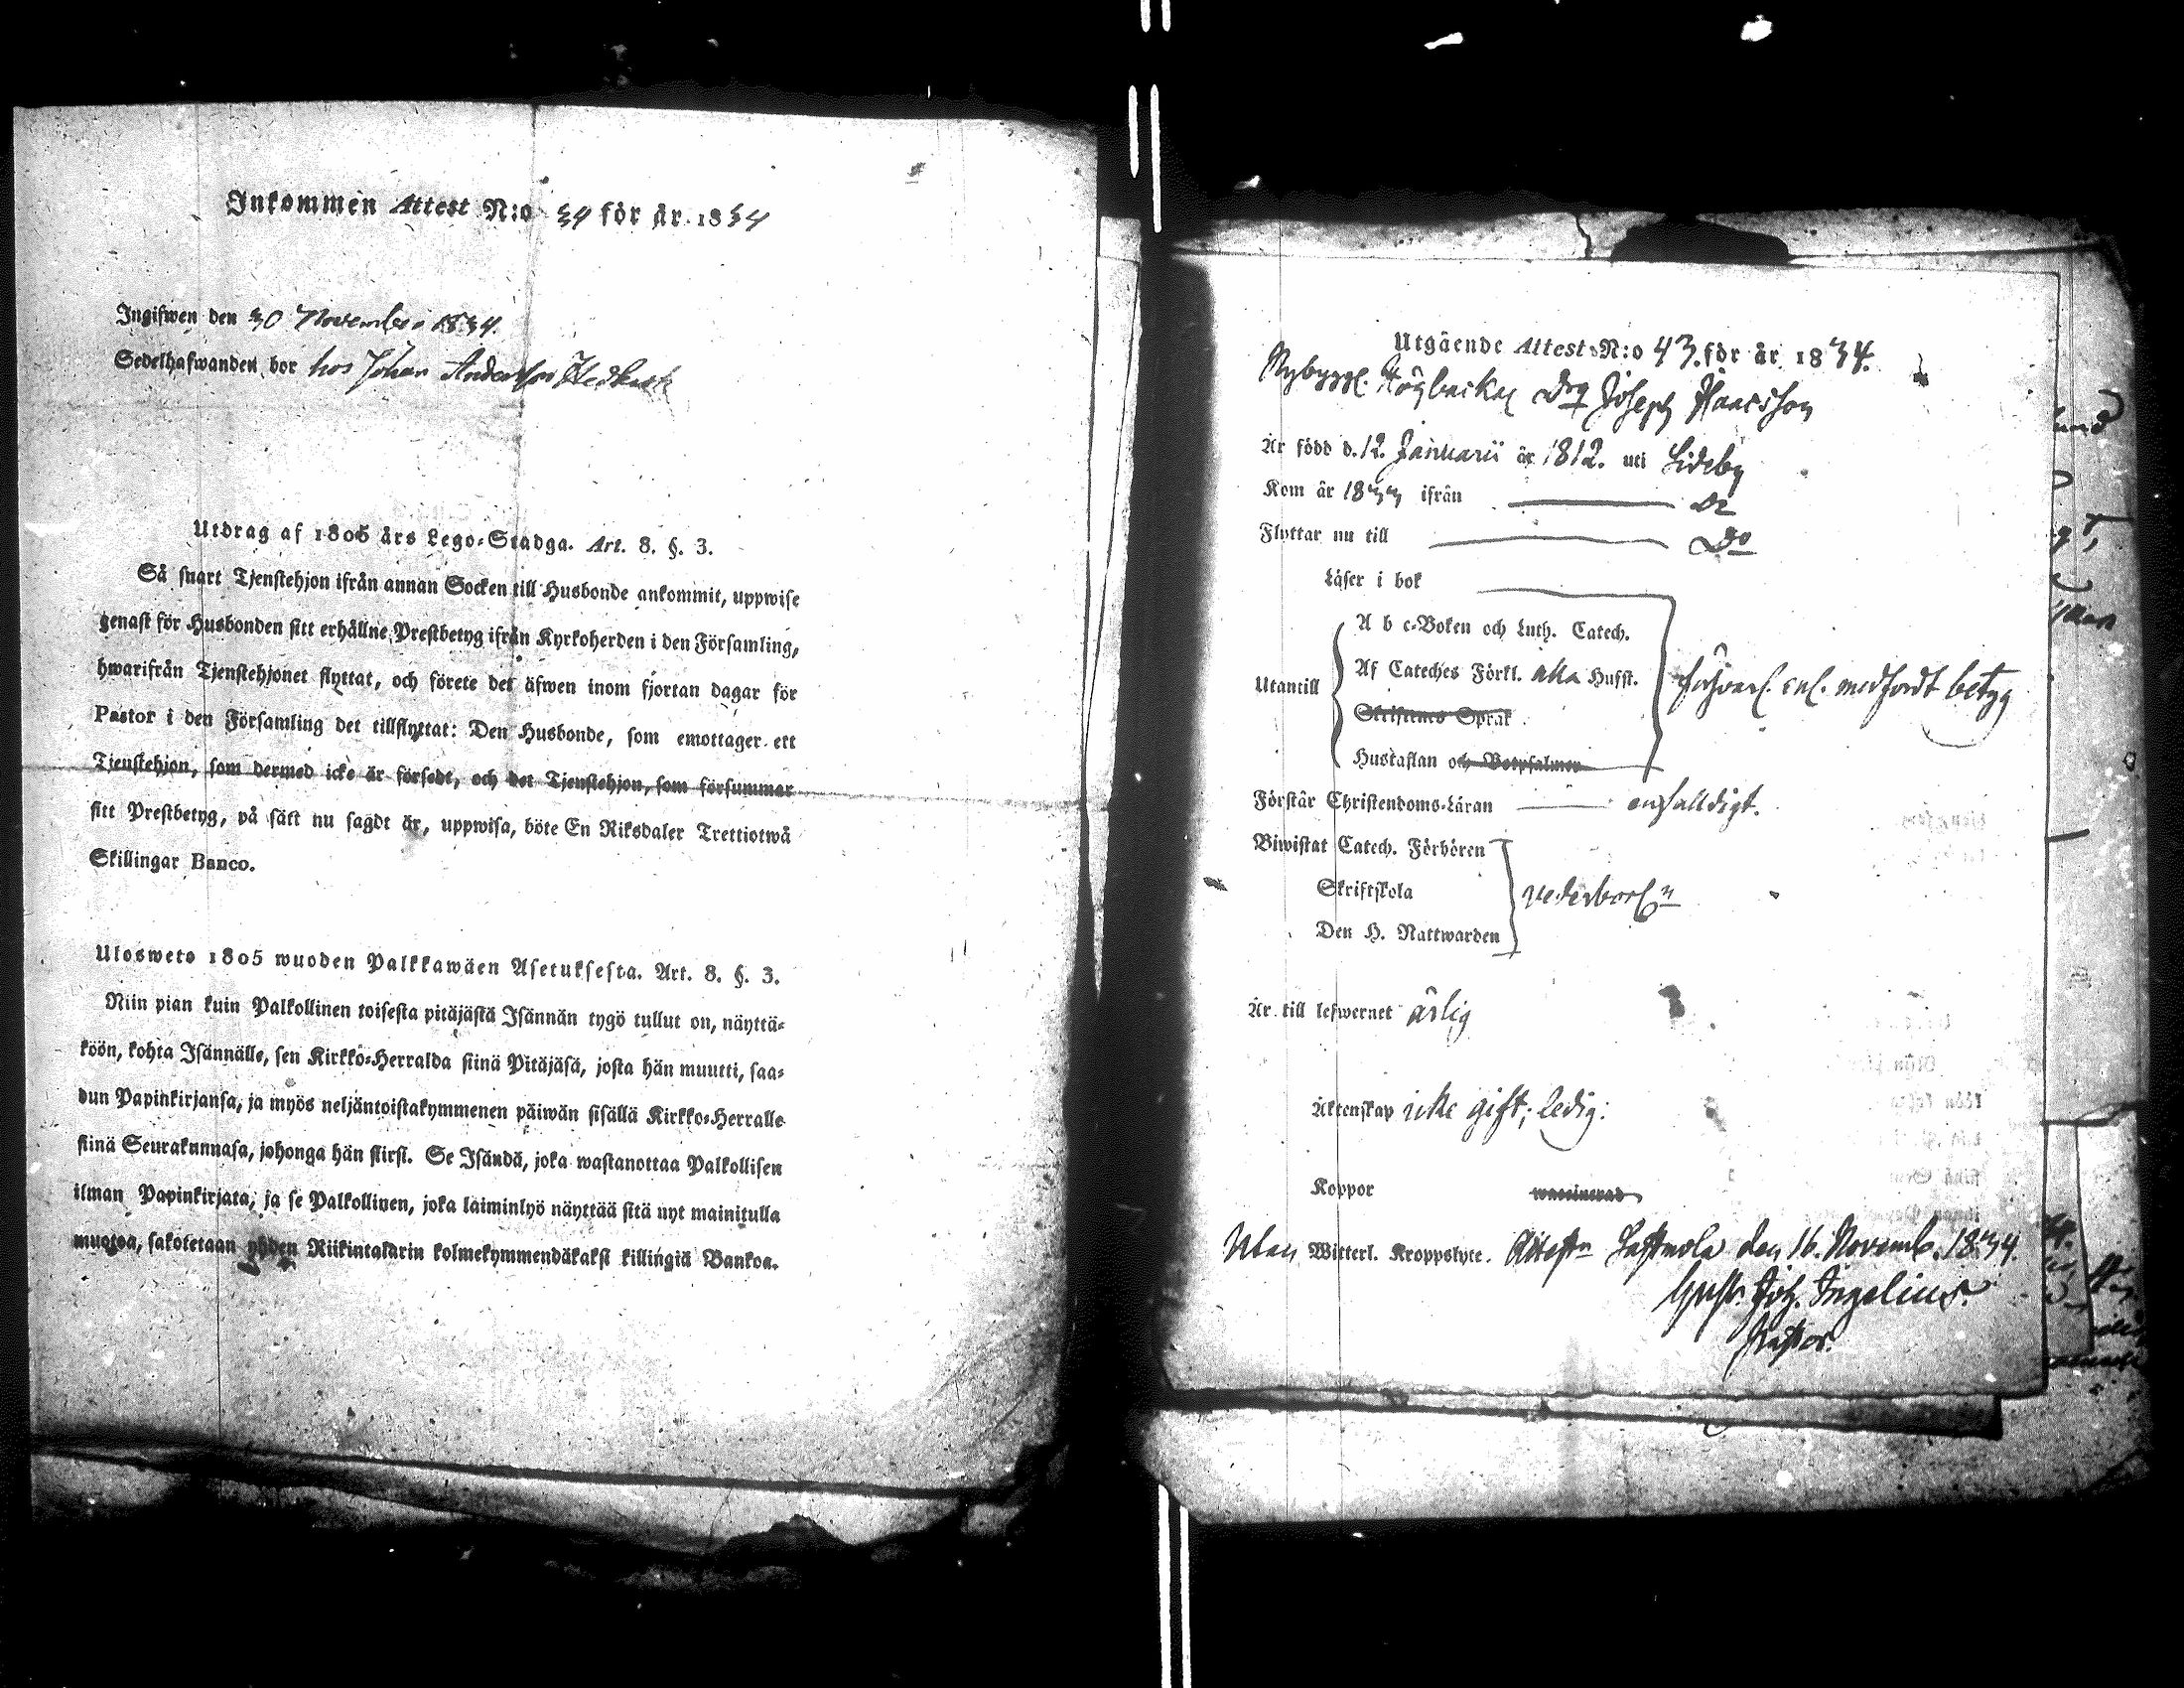 Inkommen Attest N:o 34 för år 1834
Ingifwen den 30 November 1834.
Sedelhafwanden bor hos Johan Andersson
Utdrag af 1805 års Lego-Stadga. Art. 8. §. 3.
Så snart Tjenstehjon ifrån annan Socken till Husbonde ankommit, uppwise
genast för Husbonden sitt erhållne Prestbetyg ifrån Kyrkoherden i den Församling,
hwarifrån Tjenstehjonet flyttat, och förete det äfwen inom fjortan dagar för
Pastor i den Församling det tillflyttat: Den Husbonde, som emottager ett
Tjenstehjon, som dermed icke är försedt, och det Tjenstehjon, som försummar
sitt Prestbetyg, på sätt nu sagdt är, uppwisa, böte En Riksdaler Trettiotwå
Skillingar Banco.
Ulosweto 1805 wuoden Palkkawäen Asetuksesta. Art. 8. §. 3.
Niin pian kuin Palkollinen toisesta pitäjästä Isännän tygö tullut on, näyttä-
köön, kohta Isännälle, sen Kirkko-Herralda siinä Pitäjäsä, josta hän muutti, saa-
dun Papinkirjansa, ja myös neljäntoistakymmenen päiwän sisällä Kirkko-Herralle
siinä Seurakunnasa, johonga hän siirsi. Se Isändä, joka wastanottaa Palkollisen
ilman Papinkirjata, ja se Palkollinen, joka laiminlyö näyttää sitä nyt mainitulla
muotoa, sakotetaan yhden Riikintalarin kolmekymmendäkaksi killingiä Bankoa.
Utgående Attest N:o 43. för år 1834.
Nybygg. Högbacka Drg Joseph Isaacsson
Är född d. 12. Januarii år 1812. uti Sideby
Kom år 1833 ifrån Do
Flyttar nu till Do
Läser i bok
A b c-Boken och Luth. Catech.
Utantill Af Cateches Förkl. alla Husst. enl. medfördt betyg
Skriftenes Språk
Hustaflan och Botpsalmer
Förstår Christendoms-Läran enfalldigt.
Biwistat Catech. Förhören
Skriftskola vederbörln
Den H. Nattwarden
Är till lefwernet ärlig
Äktenskap icke gift; ledig:
Koppor waccinerad
Utan Witterl. Kroppslyte. Attest. Lappmola den 16. Novemb. 1834.
Gust. Joh. Ingelius.
Pastor.